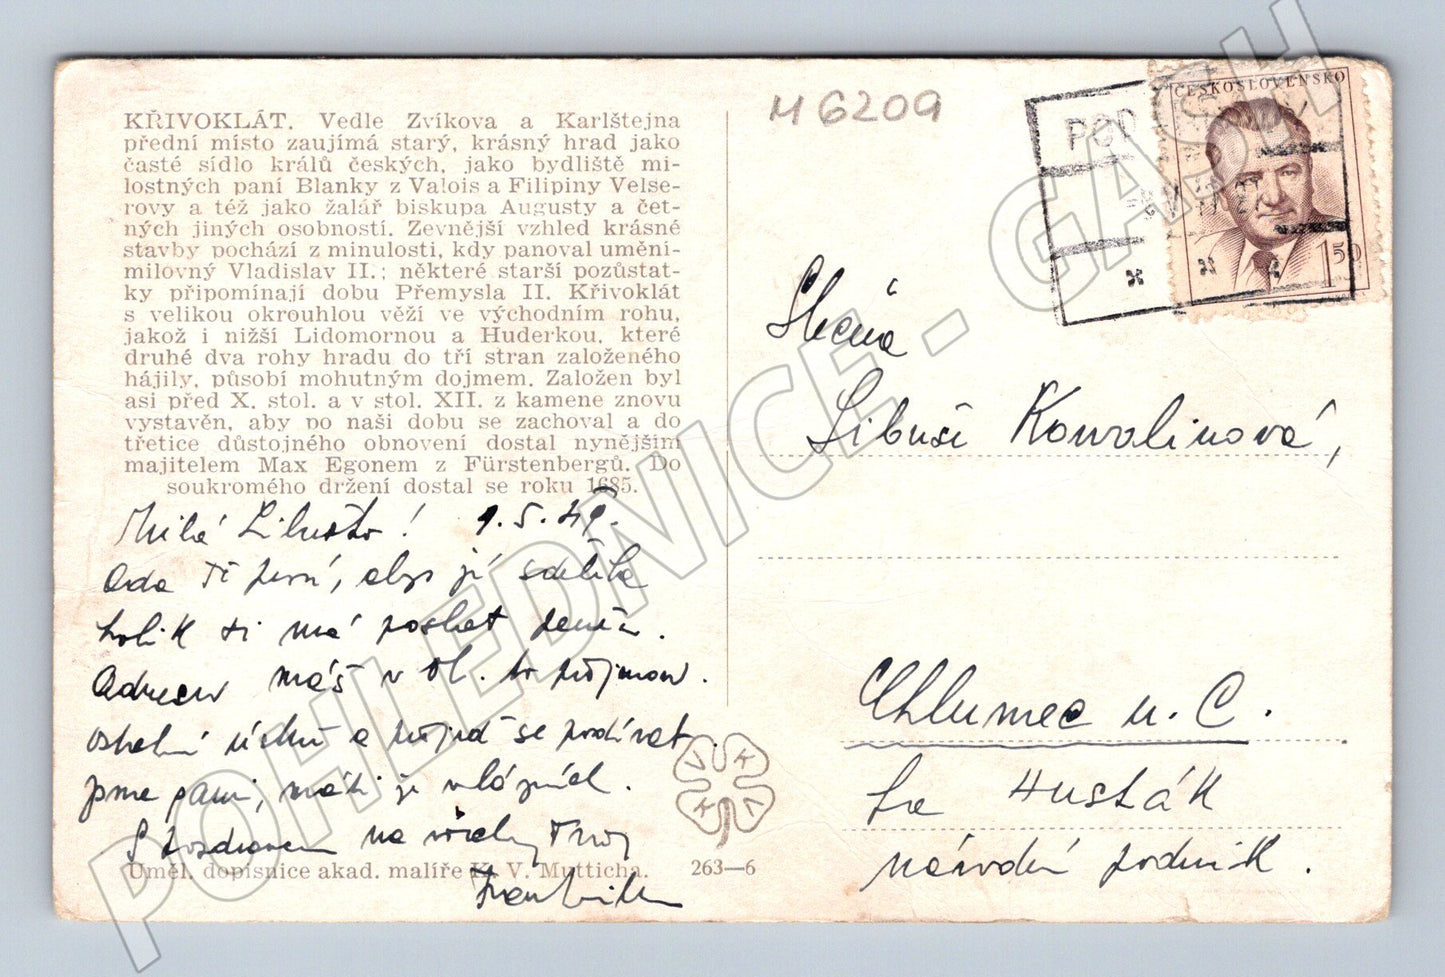 KŘIVOKLÁT. Vedle Zvíkova a Karlštejna
přední místo zaujímá starý, krásný hrad jako
časté sídlo králů českých, jako bydliště mi-
lostných paní Blanky z Valois a Filipiny Velse-
rovy a též jako žalář biskupa Augusty a čet-
ných jiných osobností. Zevnější vzhled krásné
stavby pochází z minulosti, kdy panoval umění-
milovný Vladislav II.; některé starší pozůstat-
ky připomínají dobu Přemysla II. Křivoklát
s velikou okrouhlou věží ve východním rohu,
jakož i nižší Lidomornou a Huderkou, které
druhé dva rohy hradu do tří stran založeného
hájily, působí mohutným dojmem. Založen byl
asi před X. stol. a v stol. XII. z kamene znovu
vystavěn, aby po naši dobu se zachoval a do
třetice důstojného obnovení dostal nynějším
majitelem Max Egonem z Fürstenbergů. Do
soukromého držení dostal se roku 1685.
Milá Libuško! 9.5.49.
Ada Ti , abys jí sdělila
kolik ti má poslat peněz.
Adresu máš v
a se podívat
jsme , v lázních.
S pozdravem na všechny Tvůj
Uměl. dopisnice akad. malíře K. V. Mutticha.
263—6
VKKV
M 6209
POD
ČESKOSLOVENSKO
1.50
Slečna
Libuše Kowolinová,
Chlumec n. C.
fa Husták
národní podnik.
POHLEDNICE - GASCH